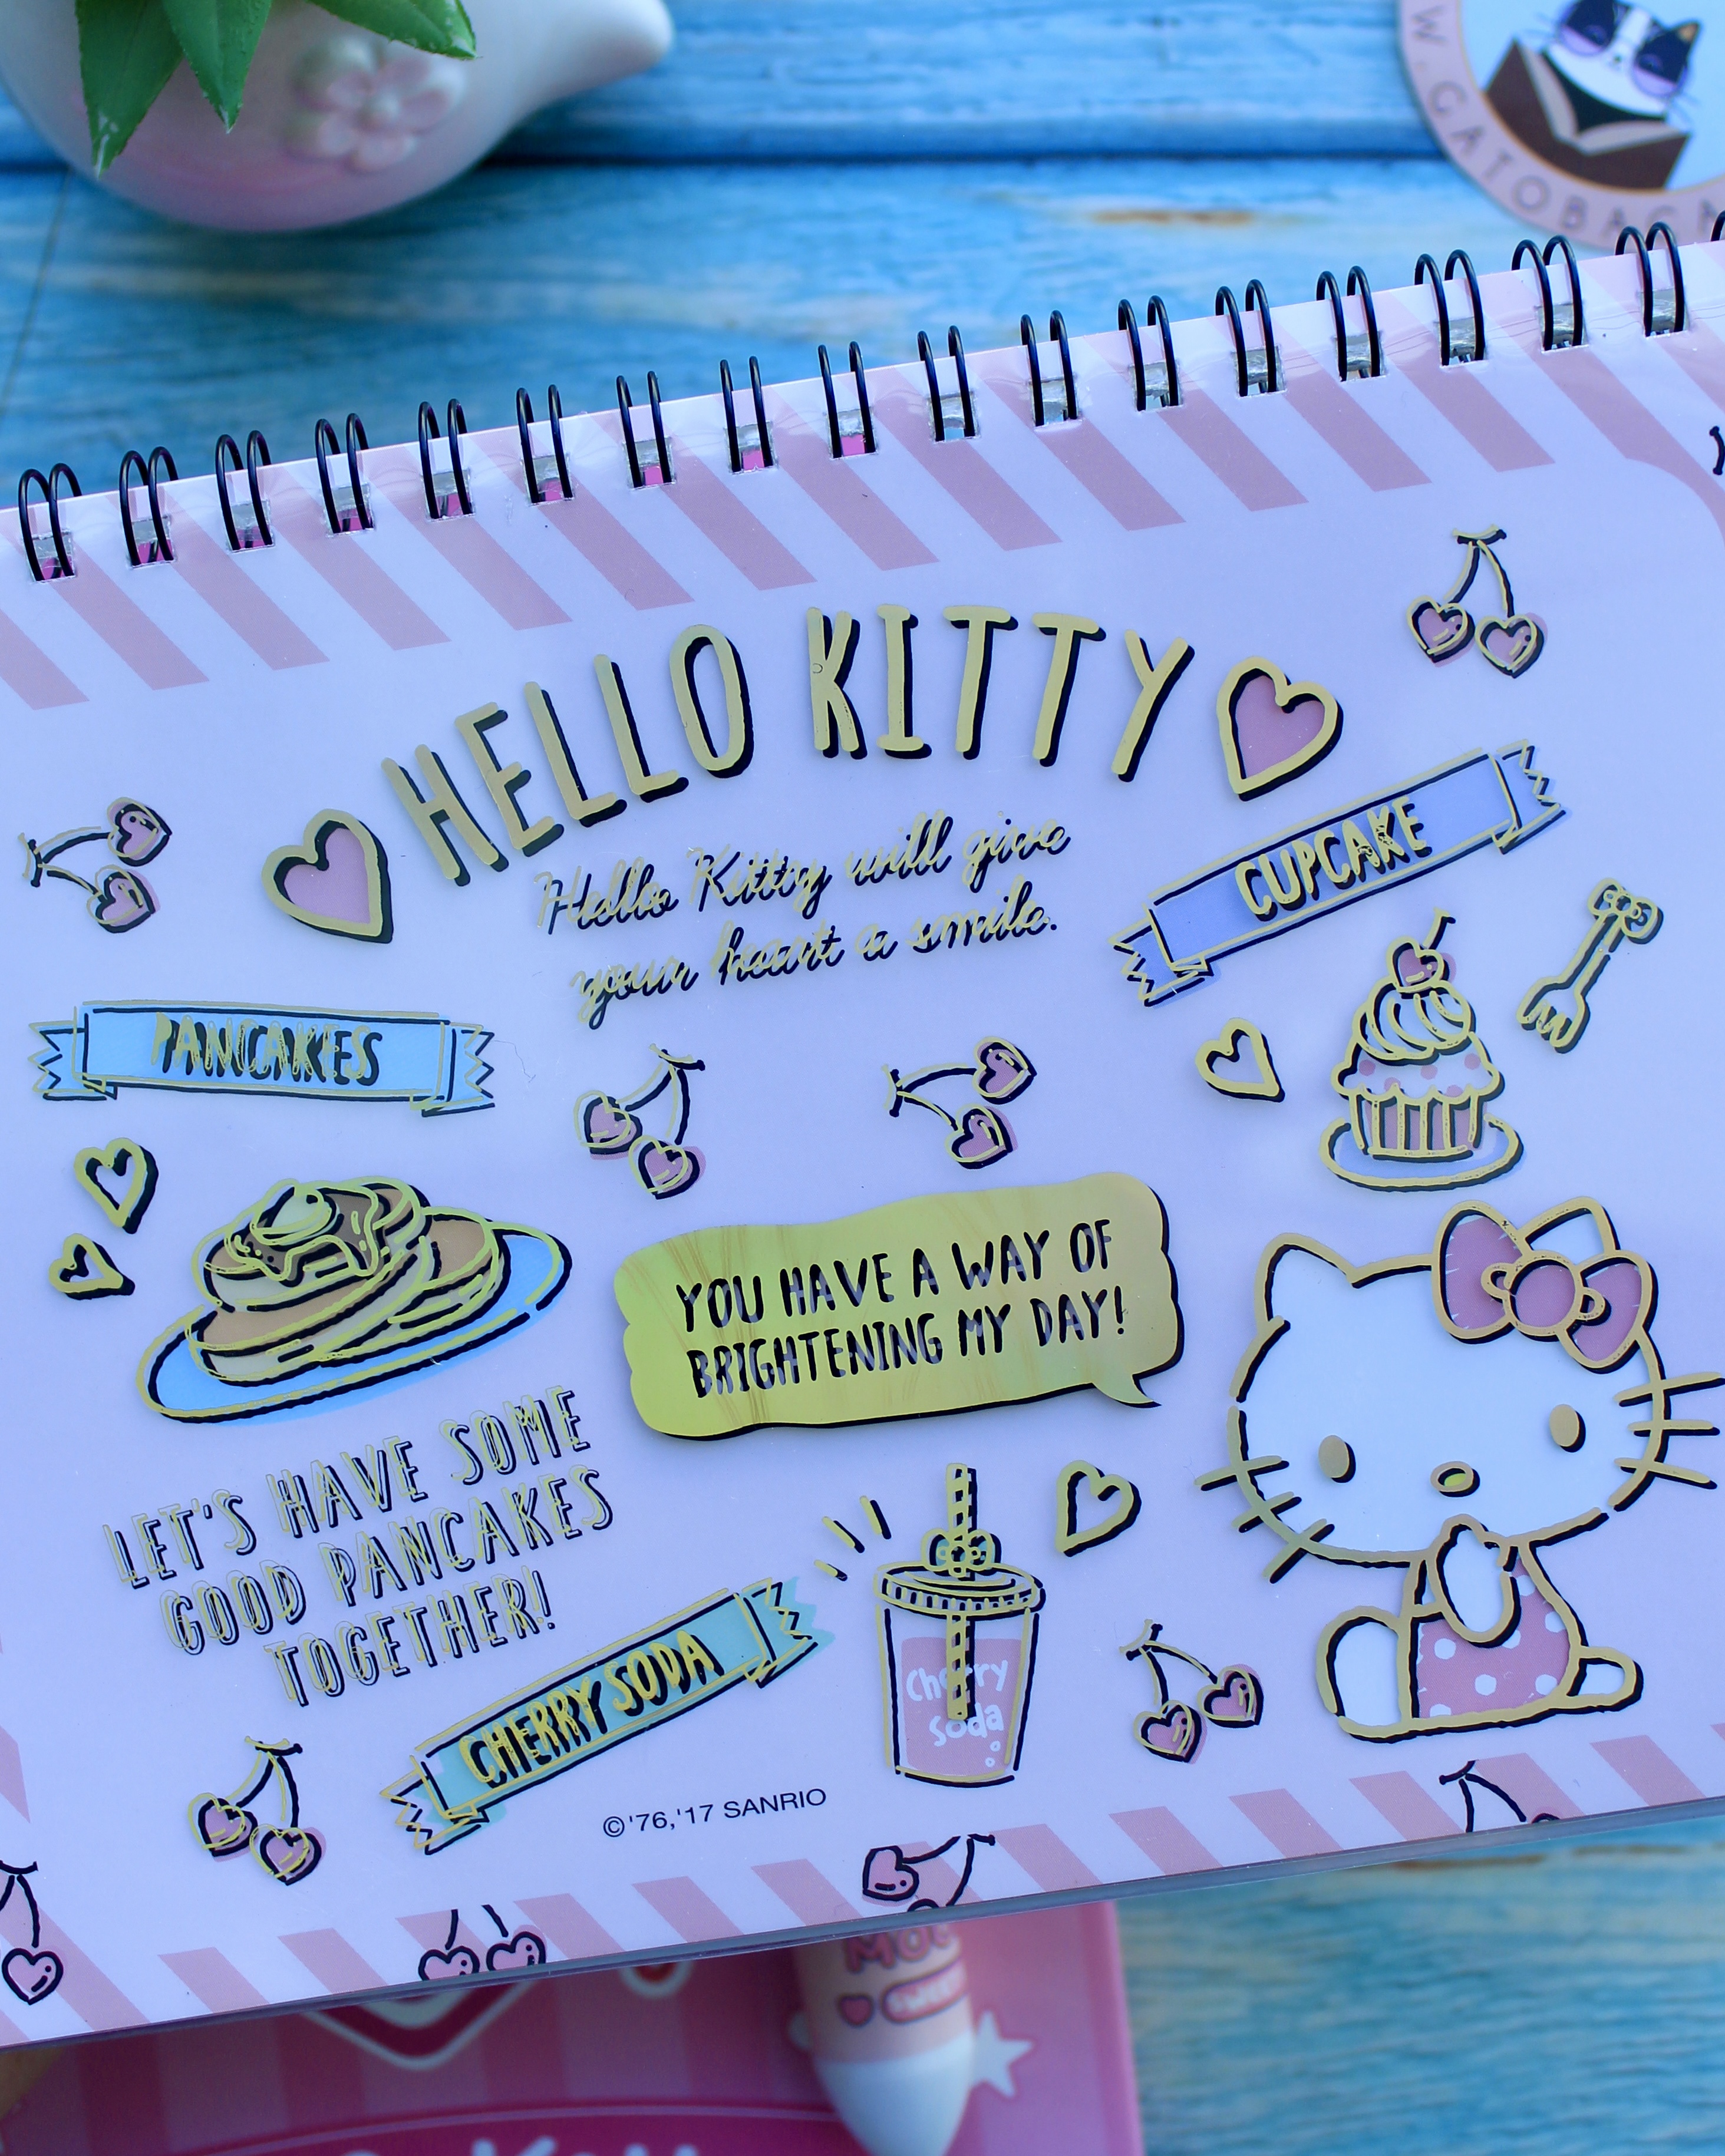 W.GATOBAC
HELLO KITTY
Hello Kitty will give
your heart a smile.
CUPCAKE
PANCAKES
YOU HAVE A WAY OF
BRIGHTENING MY DAY!
LET'S HAVE SOME
GOOD PANCAKES
TOGETHER!
CHERRY SODA
Cherry
Soda
©'76,'17 SANRIO